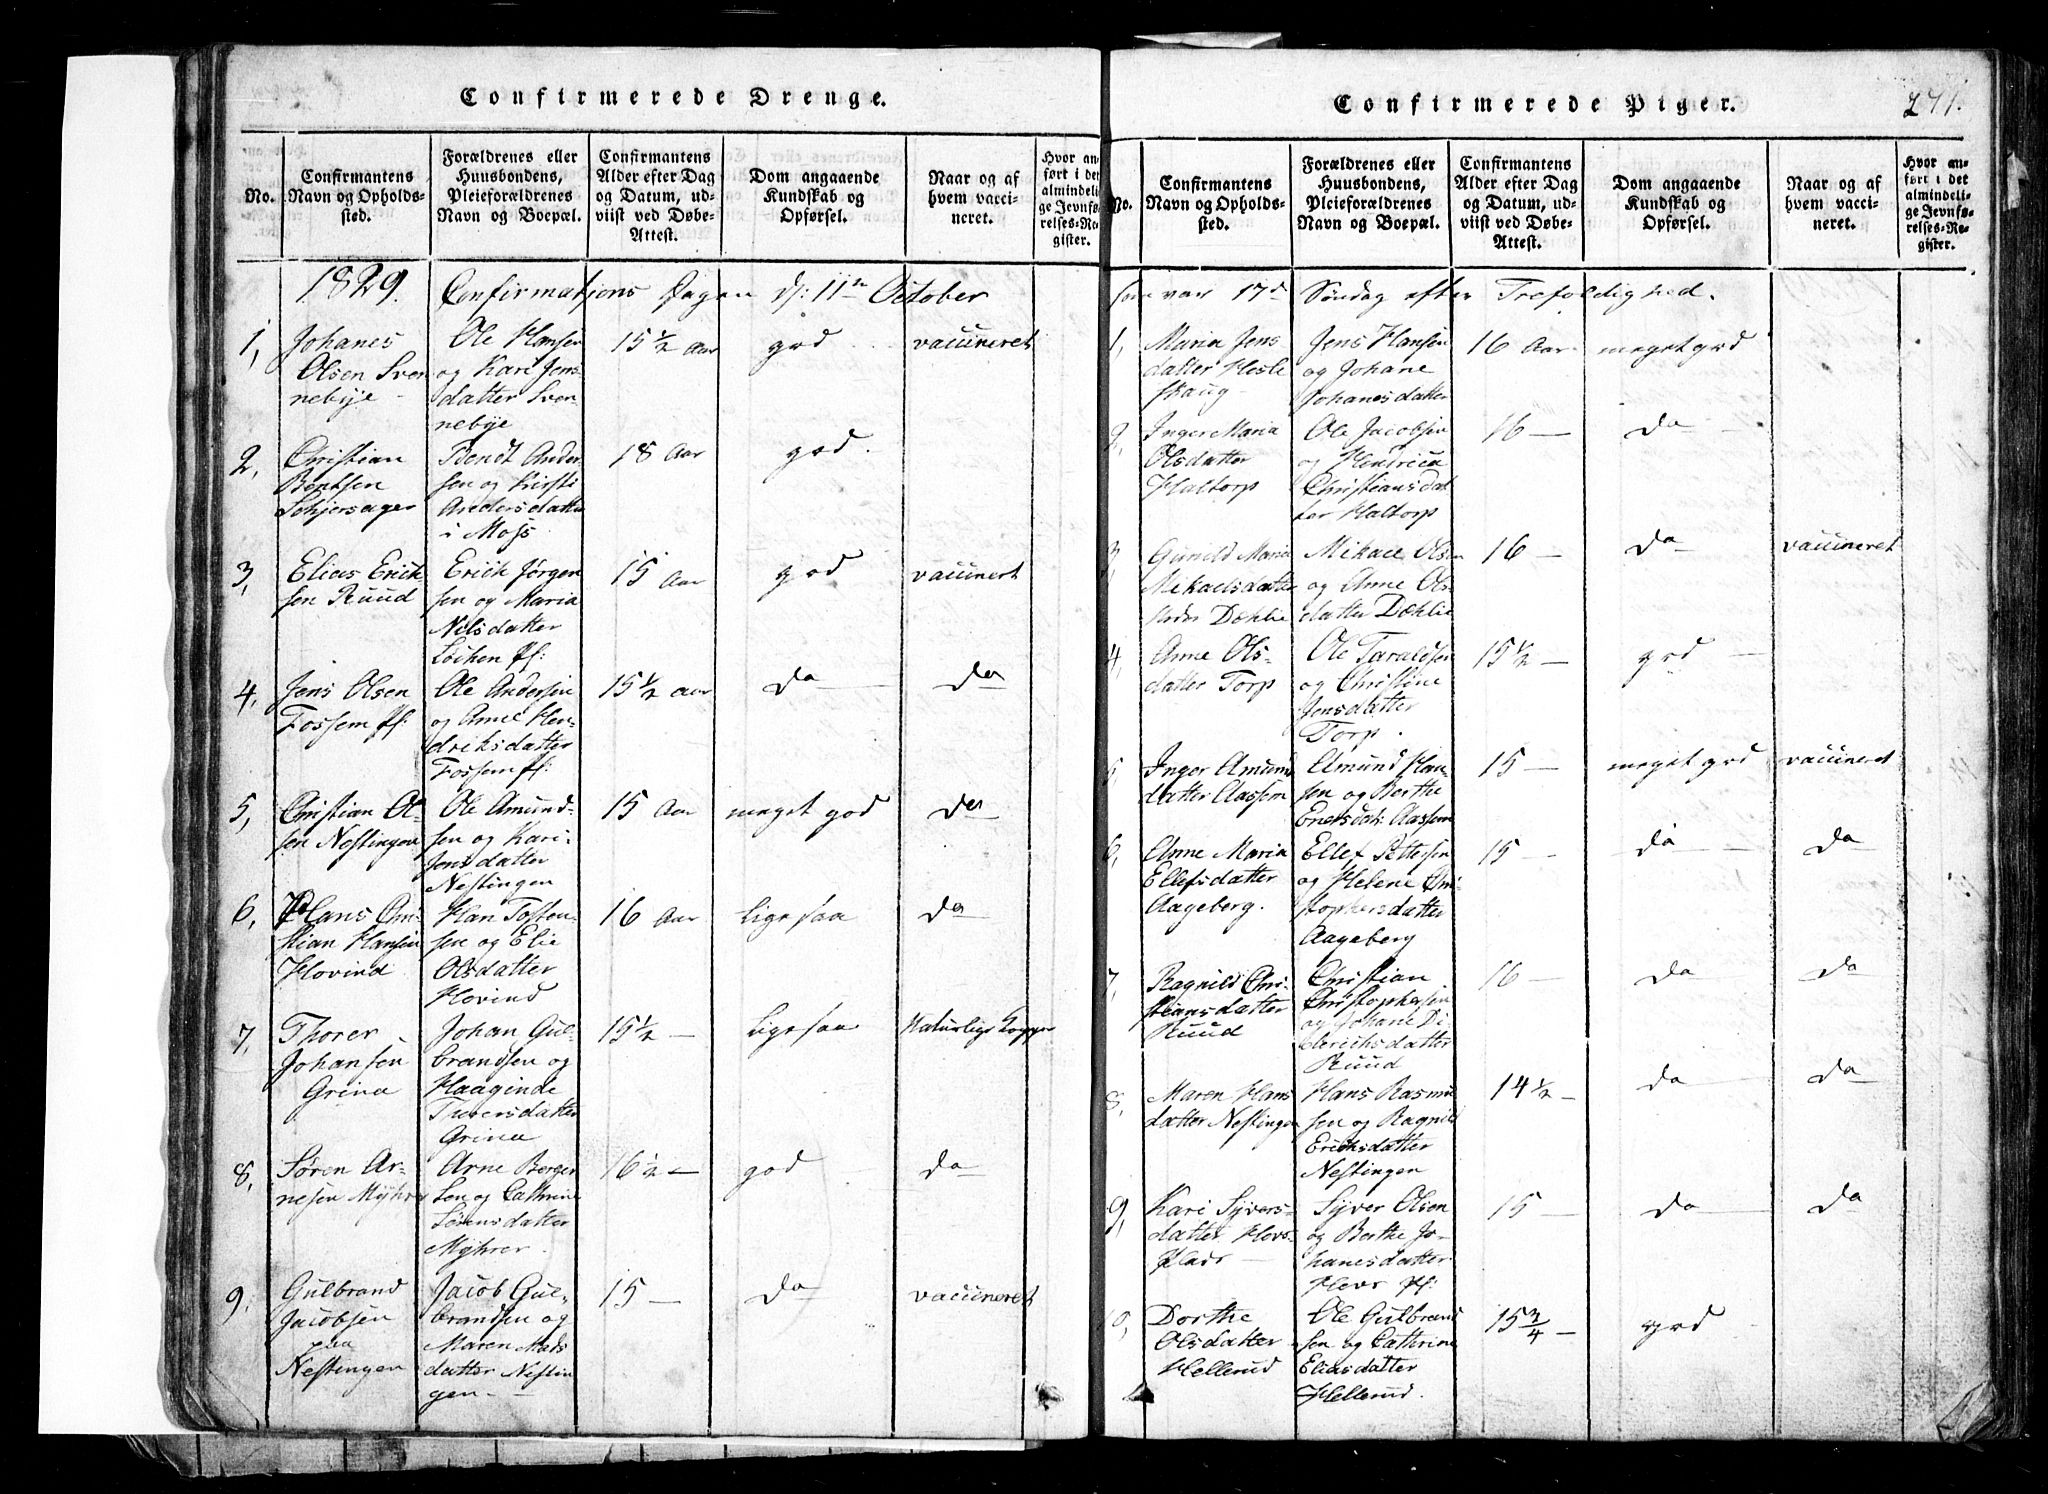 Confirmerede Drenge.
No.
Confirmantens
Navn og Opholds-
sted.
Forældrenes eller
Huusbondens,
Pleieforældrenes
Navn og Boepæl.
Confirmantens
Alder efter Dag
og Datum, ud-
viist ved Døbe-
Attest.
Dom angaaende
Kundskab og
Opførsel.
Naar og af
hvem vacci-
neret.
Hvor an-
ført i det
almindeli-
ge Jevnfø-
relses-Re-
gister.
1829. Confirmations Dagen d: 11te October
1,
Johanes
Olsen Sven
nebye
Ole Hansen
og Kari Jens
datter Sven-
nebye
15 1/2 Aar
god
vaccineret
2,
Christian
Bentsen
Schjersager
Bendt Ander
sen og Kirsti
Andersdatter
i Moss
18 Aar
god.
3,
Elias Erick
sen Ruud
Erick Jørgen
sen og Maria
Nilsdatter
Løchen pl:
15 Aar
god
vaccinert
4,
Jens Olsen
Fossem pl:
Ole Andersen
og Anne Hen-
drichsdatter
Fossem pl:
15 1/2 Aar
do
do
5,
Christian Ol-
sen Nestingen
Ole Amund-
sen og Kari
Jensdatter
Nestingen
15 Aar
meget god
do
6,
Hans Chri-
stian Hansen
Hovind
Han Tosten-
sen og Elie
Olsdatter
Hovind
16 Aar
ligesaa
do
7,
Thorer
Johansen
Grina
Johan Gul-
brandsen og
Haaginde
Turersdatter
Grina
15 1/2 —
ligesaa
Naturlige Kopper
8,
Søren Ar-
nesen Myhrer
Arne Berger
sen og Cathrine
Sørensdatter
Myhrer
16 1/2 —
god
do
9,
Gulbrand
Jacobsen
paa
Nestingen
Jacob Gul-
brandsen og
Maren Mads
datter Nestin
gen
15 —
do
vaccineret
Confirmerede Piger.
271.
No.
Confirmantens
Navn og Opholds-
sted.
Forældrenes eller
Huusbondens,
Pleieforældrenes
Navn og Boepæl.
Confirmantens
Alder efter Dag
og Datum, ud-
viist ved Døbe-
Attest.
Dom angaaende
Kundskab og
Opførsel.
Naar og af
hvem vacci-
neret.
Hvor an-
ført i det
almindeli-
ge Jevnfø-
relses-Re-
gister.
som var 17de Søndag efter Trefoldighed.
1,
Maria Jens
datter Hesle
skaug
Jens Hansen
og Johane
Johanesdatter
16 Aar
meget god
2,
Inger Maria
Olsdatter
Haltorp
Ole Jacobsen
og Hendrica
Christiansdat
ter Haltorp
16 —
do
3,
Gunild Maria
Mikaelsdatter
Dæhlie
Mikael Olsen
og Anne Ols
datter Dæhlie
16 —
do
vaccineret
4,
Anne Ols-
datter Torp
Ole Taraldsen
og Christine
Jensdatter
Torp.
15 1/2 —
god
5
Inger Amunds
datter Aassem
Amund Han-
sen og Berthe
Enersdatr Aassem
15 —
meget god
vaccineret
6,
Anne Maria
Ellefsdatter
Aageberg.
Ellef Pettersen
og Helene Chri-
stophersdatter
Aageberg
15 —
do
do
7,
Ragnild Chri-
stiansdatter
Ruud
Christian
Christophersen
og Johane Di
derichsdatter
Ruud
16 —
do
do
8,
Maren Hans
datter Nestingen
Hans Rasmu
sen og Ragnild
Erichsdatter
Nestingen
14 1/2 —
do
do
9,
Kari Syvers-
datter Hovs-
Plads
Syver Olsen
og Berthe Jo-
hanesdatter
Hovs pl:
15 —
do
do
10,
Dorthe
Olsdatter
Hellerud
Ole Gulbrand
sen og Cathrine
Eliasdatter
Hellerud.
15 3/4 —
god